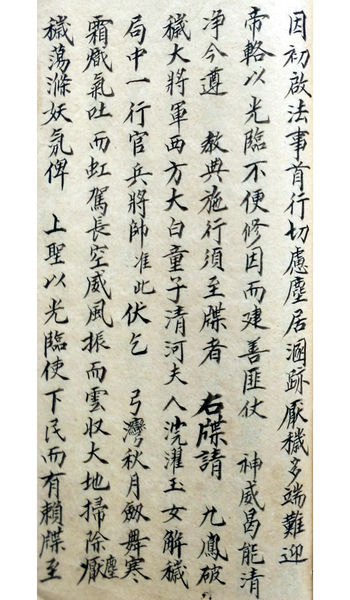 因初啟法事首行切慮塵居溷跡厭穢多端難迎
帝輅以光臨不便修因而建善匪仗　神威曷能清
净今遵　教典施行須至牒者　右牒請　九鳳破
穢大將軍西方大白童子清河夫人浣濯玉女解穢
局中一行官兵將帥准此伏乞　弓灣秋月劔舞寒
霜熾氣吐而虹駕長空威風振而雲収大地掃除厭塵
穢蕩滌妖氛俾　上聖以光臨使下民而有賴牒至